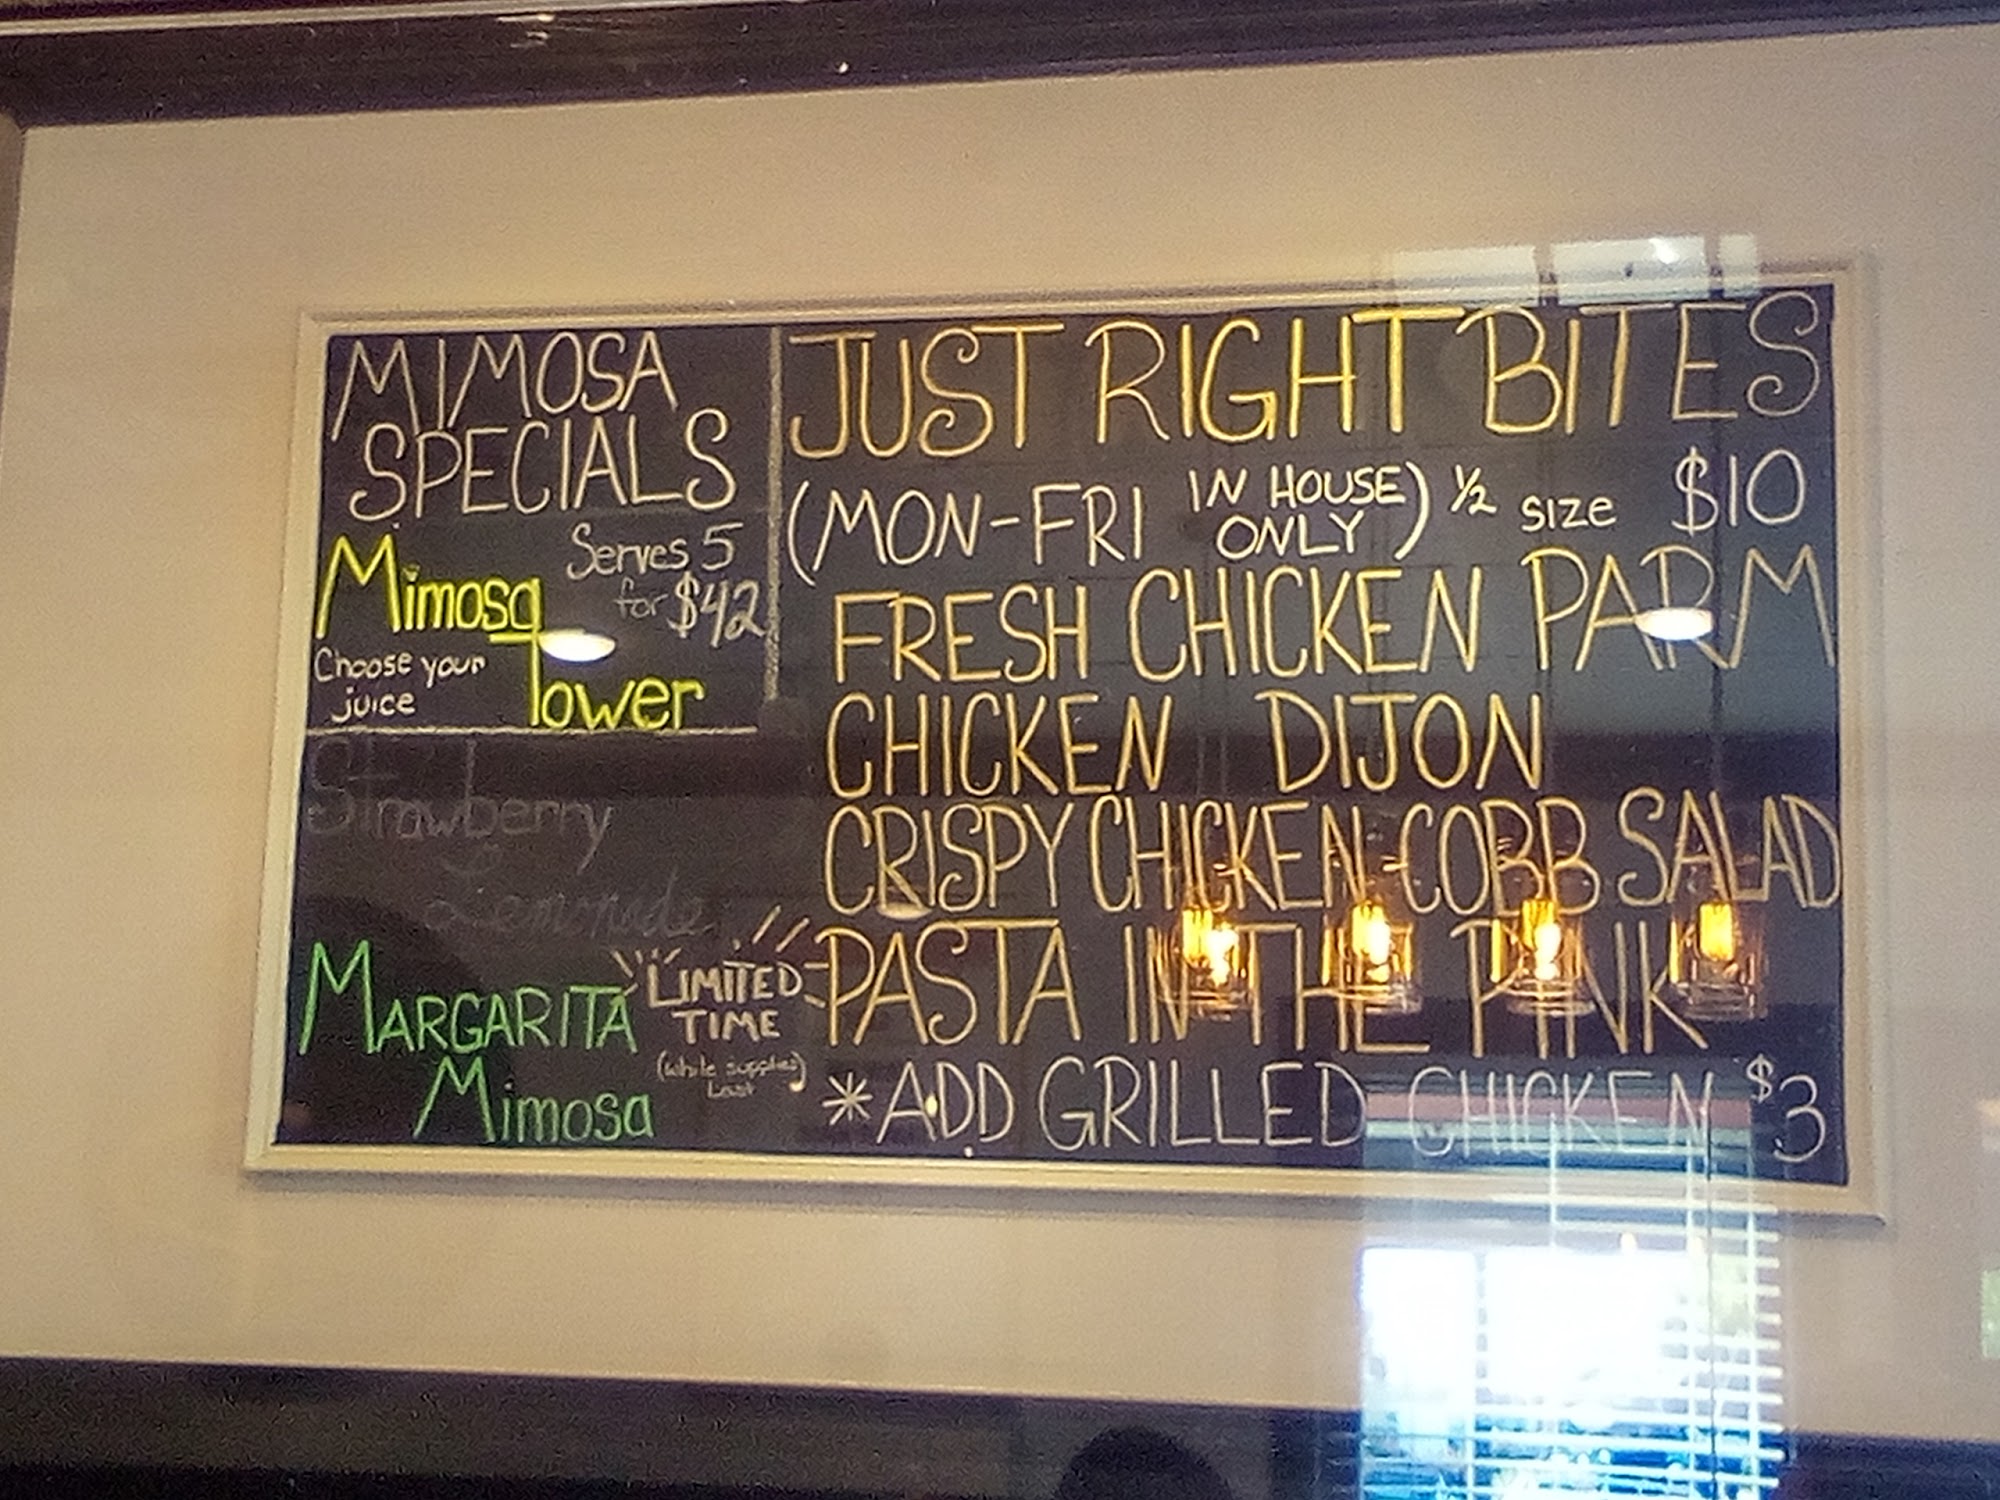 MIMOSA
SPECIALS
Mimosa
Serves 5
for $42
Choose your
juice
Tower
Strawberry
Lemonade
MARGARITA
Mimosa
LIMITED
TIME
(while supplies
Last)
JUST RIGHT BITES
(MON-FRI IN HOUSE ONLY) 1/2 SIZE $10
FRESH CHICKEN PARM
CHICKEN DIJON
CRISPY CHICKEN COBB SALAD
PASTA IN THE PINK
*ADD GRILLED CHICKEN $3